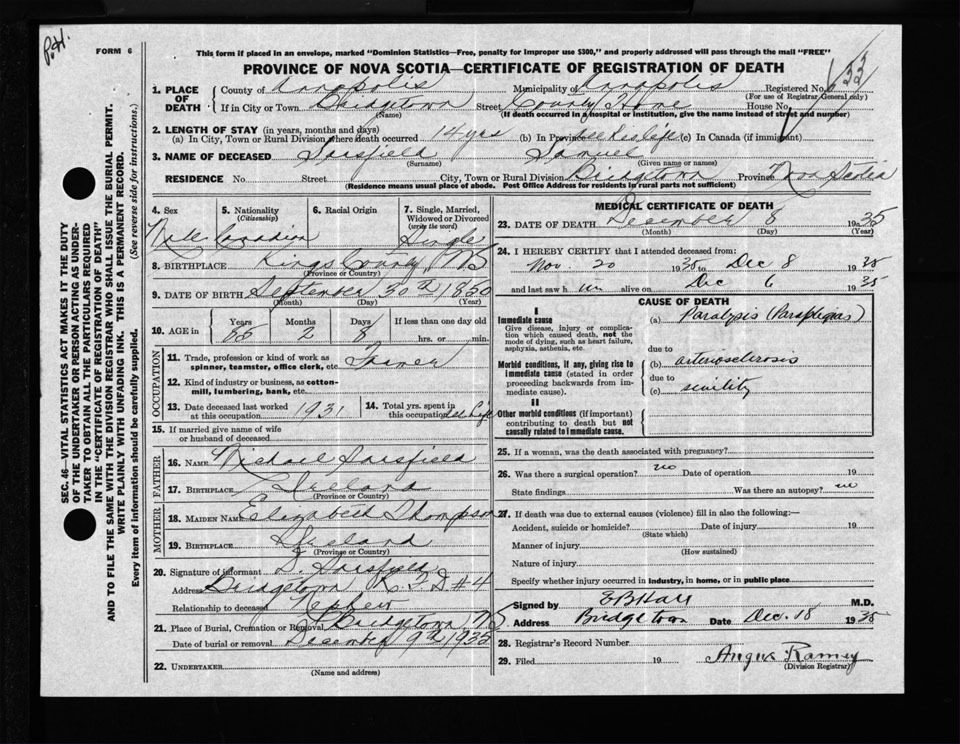 P.H.
FORM 6
This form if placed in an envelope, marked "Dominion Statistics—Free, penalty for improper use $300," and properly addressed will pass through the mail "FREE"
PROVINCE OF NOVA SCOTIA—CERTIFICATE OF REGISTRATION OF DEATH
1. PLACE OF DEATH
County of Annapolis Municipality of Annapolis Registered No. 33
(For use of Registrar General only)
If in City or Town Bridgetown Street County Home House No.
(Name) (If death occurred in a hospital or institution, give the name instead of street and number)
2. LENGTH OF STAY (in years, months and days)
(a) In City, Town or Rural Division where death occurred 14 yrs (b) In Province all his life (c) In Canada (if immigrant)
3. NAME OF DECEASED Sarsfield Samuel
(Surname) (Given name or names)
RESIDENCE No. Street City, Town or Rural Division Bridgetown Province Nova Scotia
(Residence means usual place of abode. Post Office Address for residents in rural parts not sufficient)
4. Sex Male
5. Nationality (Citizenship) Canadian
6. Racial Origin
7. Single, Married, Widowed or Divorced (write the word) Single
8. BIRTHPLACE Kings County, NS
(Province or Country)
9. DATE OF BIRTH September 30th 1850
(Month) (Day) (Year)
10. AGE in Years 85 Months 2 Days 8 If less than one day old
hrs. or min.
OCCUPATION
11. Trade, profession or kind of work as spinner, teamster, office clerk, etc. Farmer
12. Kind of industry or business, as cotton-mill, lumbering, bank, etc.
13. Date deceased last worked at this occupation 1931
14. Total yrs. spent in this occupation all life
15. If married give name of wife or husband of deceased
FATHER
16. NAME Michael Sarsfield
17. BIRTHPLACE Ireland
(Province or Country)
MOTHER
18. MAIDEN NAME Elizabeth Thompson
19. BIRTHPLACE Ireland
(Province or Country)
20. Signature of informant D. Sarsfield
Address Bridgetown R F D #4
Relationship to deceased Nephew
21. Place of Burial, Cremation or Removal Bridgetown, NS
Date of burial or removal December 9th 1935
22. UNDERTAKER
(Name and address)
MEDICAL CERTIFICATE OF DEATH
23. DATE OF DEATH December 8 1935
(Month) (Day) (Year)
24. I HEREBY CERTIFY that I attended deceased from:
Nov. 20 1935 to Dec 8 1935
and last saw h im alive on Dec 6 1935
CAUSE OF DEATH
I
Immediate cause
Give disease, injury or complication which caused death, not the mode of dying, such as heart failure, asphyxia, asthenia, etc.
(a) Paralysis (Paraplegias)
due to
Morbid conditions, if any, giving rise to immediate cause (stated in order proceeding backwards from immediate cause).
(b) arteriosclerosis
due to
(c) senility
II
Other morbid conditions (if important) contributing to death but not causally related to immediate cause.
25. If a woman, was the death associated with pregnancy?
26. Was there a surgical operation? no Date of operation 19
State findings Was there an autopsy? no
27. If death was due to external causes (violence) fill in also the following:—
Accident, suicide or homicide? Date of injury 19
(State which)
Manner of injury
(How sustained)
Nature of injury
Specify whether injury occurred in industry, in home, or in public place
Signed by E B Hall M.D.
Address Bridgetown Date Dec. 18 1935
28. Registrar's Record Number
29. Filed 19 Angus Ramey
(Division Registrar)
SEC. 46—VITAL STATISTICS ACT MAKES IT THE DUTY
OF THE UNDERTAKER OR PERSON ACTING AS UNDER-
TAKER TO OBTAIN ALL THE PARTICULARS REQUIRED
IN THE "CERTIFICATE OF REGISTRATION OF DEATH"
AND TO FILE THE SAME WITH THE DIVISION REGISTRAR WHO SHALL ISSUE THE BURIAL PERMIT.
WRITE PLAINLY WITH UNFADING INK. THIS IS A PERMANENT RECORD.
Every item of information should be carefully supplied. (See reverse side for instructions.)